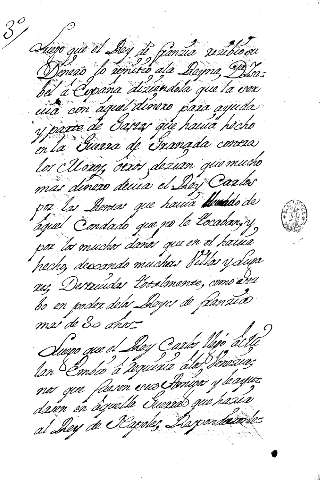 3º
Luego que el Rey de francia recibio su
Dinero lo remitio ala Reyna Dª Isa-
bel a España diziendola que la ser
uia con aquel dinero para ayuda
y parte de Gastos que hauia hecho
en la Guerra de Granada contra
los Moros, otros dezian que mucho
mas dinero deuia el Rey Carlos
por las Rentas que hauia lleuado de
aquel Condado que no le tocaban, y
por los muchos daños que en el hauia
hecho, dexando muchas Villas y Luga
res Destruidas totalmente, como estu
bo en poder delos Reyes de francia
mas de 30 años.
Luego que el Rey Carlos llegó a Mi
lan Embio a requerir a los
nos que fuesen sus Amigos y le ayu
dasen en aquella Guerra que hacia
al Rey de Napoles, Respondieron le-